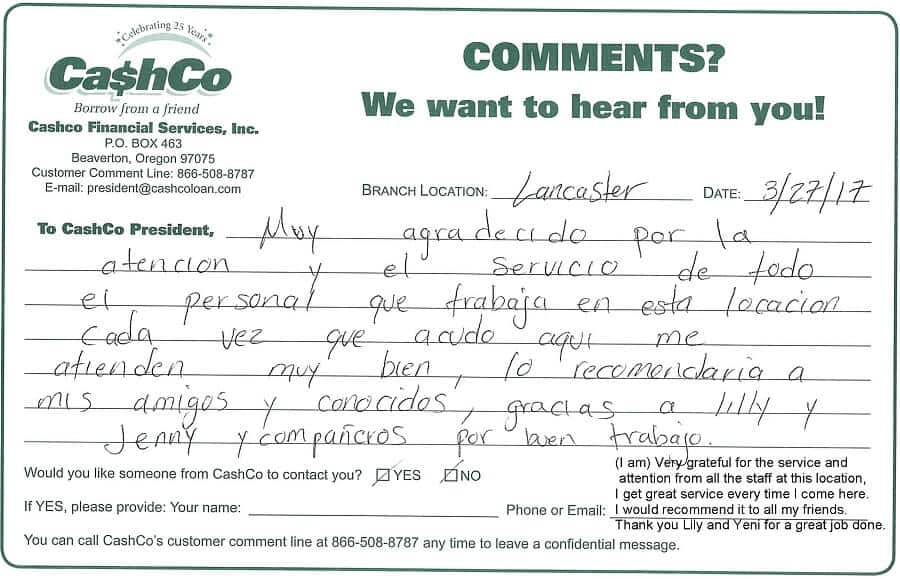 Celebrating 25 Years
Ca$hCo
Borrow from a friend
Cashco Financial Services, Inc.
P.O. BOX 463
Beaverton, Oregon 97075
Customer Comment Line: 866-508-8787
E-mail: president@cashcoloan.com
COMMENTS?
We want to hear from you!
BRANCH LOCATION: Lancaster DATE: 3/27/17
To CashCo President, Muy agradecido por la
atencion y el servicio de todo
el personal que trabaja en esta locacion
cada vez que acudo aqui me
atienden muy bien, lo recomendaria a
mis amigos y conocidos, gracias a lilly y
Jenny y compañeros por buen trabajo.
Would you like someone from CashCo to contact you? YES NO
If YES, please provide: Your name: Phone or Email:
(I am) Very grateful for the service and
attention from all the staff at this location,
I get great service every time I come here.
I would recommend it to all my friends.
Thank you Lily and Yeni for a great job done.
You can call CashCo's customer comment line at 866-508-8787 any time to leave a confidential message.